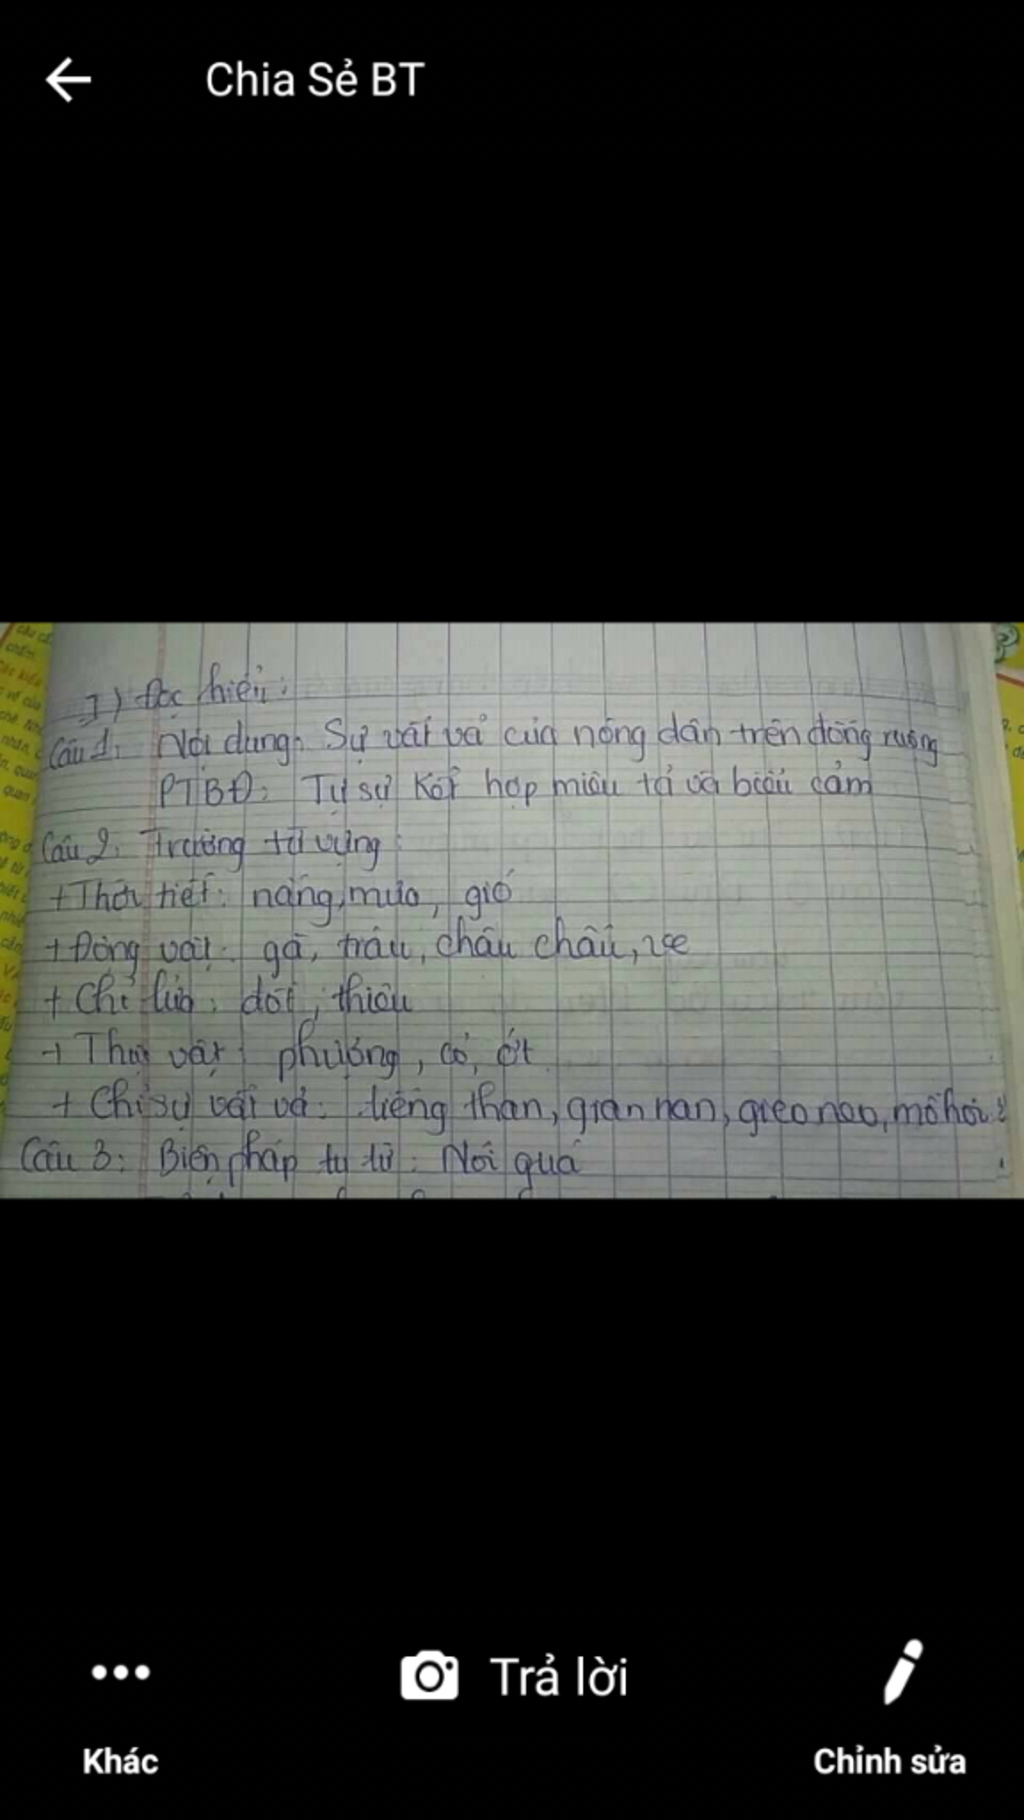 Chia Sẻ BT
I) Đọc hiểu:
Câu 1: Nội dung: Sự vất vả của nông dân trên đồng ruộng
PTBĐ: Tự sự kết hợp miêu tả và biểu cảm
Câu 2: Trường từ vựng:
+ Thời tiết: nắng, mưa, gió
+ Động vật: gà, trâu, châu chấu, ve
+ Chỉ lửa: đốt, thiêu
+ Thực vật: phượng, cỏ, ớt
+ Chỉ sự vất vả: tiếng than, gian nan, gieo neo, mồ hôi
Câu 3: Biện pháp tu từ: Nói quá
Trả lời
Khác
Chỉnh sửa